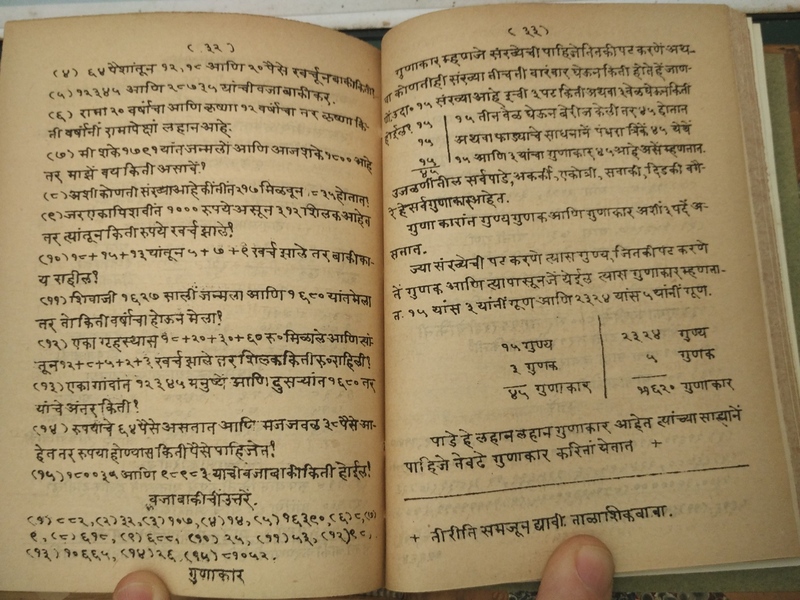 ( ३२ )
(४) ६४ पैशांतून १२, १८ आणि २० पैसे खर्चून बाकी किती?
(५) १२३४५ आणि २८७३५ यांची वजाबाकी कर.
(६) रामा २० वर्षांचा आणि कृष्णा १२ वर्षांचा नर कृष्णा कि-
ती वर्षांनीं रामापेक्षां लहान आहे.
(७) मी शके १७९१ यांत जन्मलों आणि आज शके १८०० आहे
तर माझें वय किती असावें?
(८) अशी कोणती संख्या आहे कीं नींत २१७ मिळवून, ८३५ होतात?
(९) जर एका पिशवींत १००० रुपये असून ३१२ शिलक आहेत
तर त्यांतून किती रुपये खर्च झाले?
(१०) १८+१५+१३ यांतून ५+७+९ खर्च झाले तर बाकी काय-
य राहील?
(११) शिवाजी १६२७ सालीं जन्मला आणि १६८० यांत मेला
तर तो किती वर्षांचा होऊन मेला?
(१२) एका गृहस्थास १८+२०+३०+६० रु० मिळाले आणि त्यां-
तून १२+८+५+२+३ खर्च झाले तर शिलक किती रु० राहिली?
(१३) एका गांवांत १२३४५ मनुष्यें आणि दुसऱ्यांत १६८० तर
यांचे अंतर किती?
(१४) रुपयाचे ६४ पैसे असतात आणि मजजवळ ३८ पैसे आ-
हेत तर रुपया होण्यास किती पैसे पाहिजेत?
(१५) १८००३५ आणि ९८९८३ याची वजाबाकी किती होईल?
वजाबाकीचीं उत्तरें.
(१) ८८२, (२) ३२, (३) १०७, (४) १४, (५) १६३९०, (६) ८, (७)
९, (८) ६१८, (९) ६८८, (१०) २५, (११) ५३, (१२) ९८,
(१३) १०६६५, (१४) २६, (१५) ८१०५२.
गुणाकार
( ३३ )
गुणाकार म्हणजे संख्येची पाहिजे तितकी पट करणें अथ-
वा कोणतीही संख्या तीच ती वारंवार घेऊन किती होते हें जाण-
णें. उदा० १५ संख्या आहे हूची ३ पट किती अथवा ३ वेळ घेऊन किती
होईल? १५ | १५ तीन वेळ घेऊन बेरीज केली तर ४५ होतात
१५ | अथवा फाड्यांचे साधनानें पंधरा त्रिकें ४५ येथें
१५ | १५ आणि ३ यांचा गुणाकार ४५ आहे असें म्हणतात.
४५
उजळणींतील सर्व पाढे, अकर्की, एकोत्री, सवाकी, दिडकी वगै-
रे हे सर्व गुणाकार आहेत.
गुणाकारांत गुण्य गुणक आणि गुणाकार अशीं ३ पदें अ-
सतात.
ज्या संख्येची पट करणें त्यास गुण्य, जितकी पट करणें
तें गुणक आणि त्यापासून जें येईल त्यास गुणाकार म्हणता-
त. १५ यांस ३ यांनीं गूण आणि २३२४ यांस ५ यांनीं गूण.
१५ गुण्य | २३२४ गुण्य
३ गुणक | ५ गुणक
४५ गुणाकार | ११६२० गुणाकार
पाढे हे लहान लहान गुणाकार आहेत त्यांच्या साह्यानें
पाहिजे तेवढे गुणाकार करितां येतात +
+ ती रीति समजून द्यावी. ताळा शिकवावा.